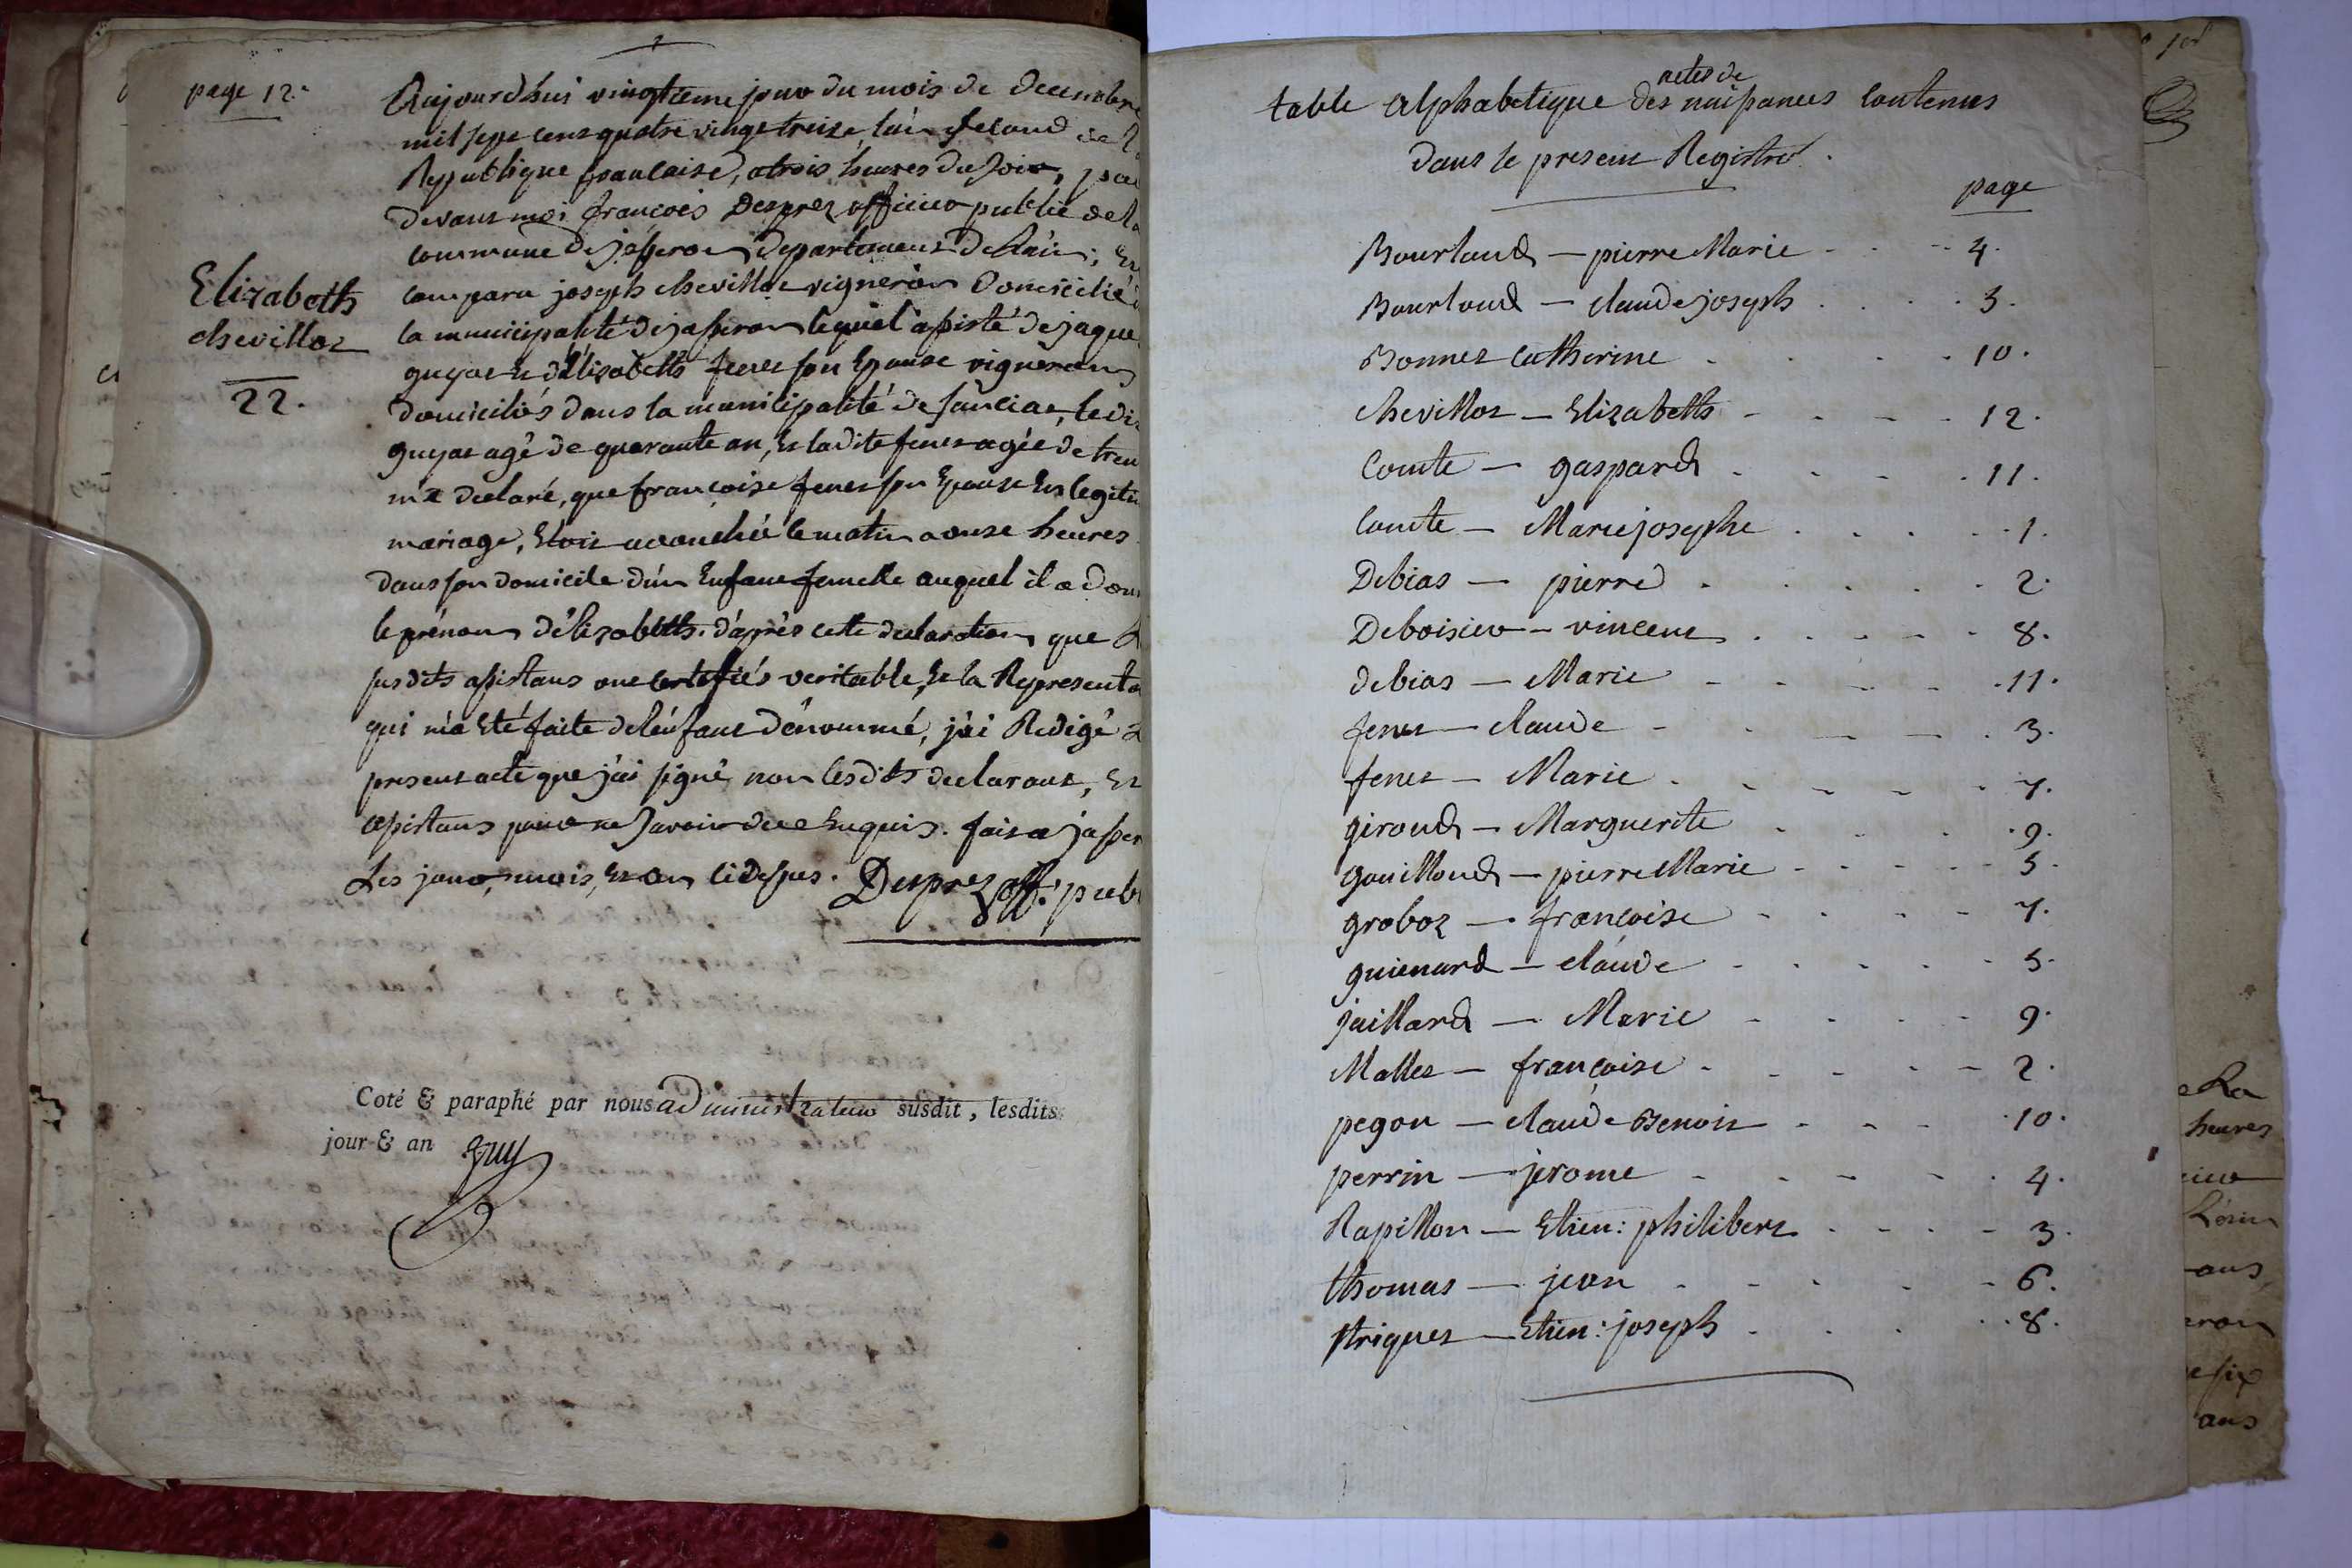 page 12.
Aujourdhui vingtieme jour du mois de Decembre
mil sept cent quatre vingt treize, l'an second de la
Republique française, a trois heures du soir, par
devant moi françois Desprez officier public de la
commune de jasseron departement de l'ain, Est
comparu joseph chevillot vigneron Domicilié
la municipalité de jasseron lequel assisté de jaque
guyat Et d'Elisabeth feret son Epouse vignerons
domiciliés dans la municipalité de sanciat, ledit
guyat agé de quarante an, Et ladite feret agée de tren
m'a declaré, que françoise feret son Epouse En legiti
mariage, Etoit accouchée le matin a onze heures
dans son domicile d'un Enfant femelle auquel il a don
le prénom d'élizabeth. d'après cette declaration que
susdits assistans ont certifiés veritable, Et la Representa
qui m'a Eté faite de l'enfant dénommé, j'ai Redigé
present acte que j'ai signé, non lesdits declarant, Et
assistans pour ne savoir de ce Enquis. fait a jasser
Les jour, mois, Et an cidessus. Desprez off. publ
Elizabeth
chevillot
22.
Coté & paraphé par nous administrateur susdit, lesdits
jour & an
table alphabetique des actes de naissances contenus
dans le present Registre.
page
Bourlaud — pierre Marie - - - 4.
Bourloud — claude joseph . . . . 3.
Bonnet catherine - . . . . 10.
chevillot — Elizabeth - - - - 12.
Comte — gaspard . - - . 11.
Comte — Marie josephe . . . . . 1.
Debias — pierre . . . . . 2.
Deboisieu — vincent . . . - . 8.
debias — Marie - - - - . 11.
feret — claude - - - - . 3.
feret — Marie . - - - - . 7.
giroud — Marguerite . . . . . 9.
gouilloud — pierre Marie - - - - - 5.
groboz — françoise - . - - 7.
guienard — claude - . . . . 5.
jaillard — Marie - - - - 9.
Mallet — françoise - - - - - 2.
pegon — claude Benoit - - - . 10.
perrin — jerome - - - - . 4.
Rapillon — Etien: philibert . - - - 3.
thomas — jean - - - - - 6.
triquet — Etien: joseph . . . . . 8.
heures
ans